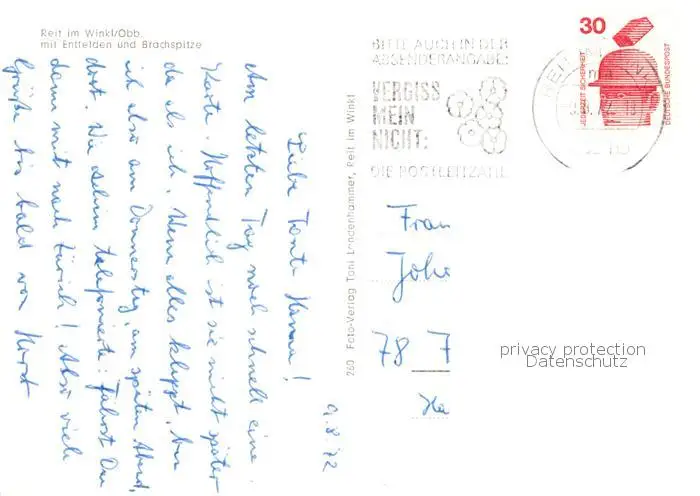 Reit im Winkl/Obb.
mit Entfelden und Brachspitze
9.8.72
Liebe Tante Hanna!
Am letzten Tag noch schnell eine
Karte. Hoffentlich ist sie nicht später
da als ich. Wenn alles klappt, bin
ich also am Donnerstag, am späten Abend,
dort. Wie schon telefonierte: Fährst Du
dann mit nach Zürich! Also viele
Grüße bis bald von Horst
260 Foto-Verlag Toni Lendenhammer, Reit im Winkl
BITTE AUCH IN DER
ABSENDERANGABE:
VERGISS
MEIN
NICHT:
DIE POSTLEITZAHL
REIT
30
JEDERZEIT SICHERHEIT
DEUTSCHE BUNDESPOST
Frau
Joh
78 7
Ha
privacy protection
Datenschutz